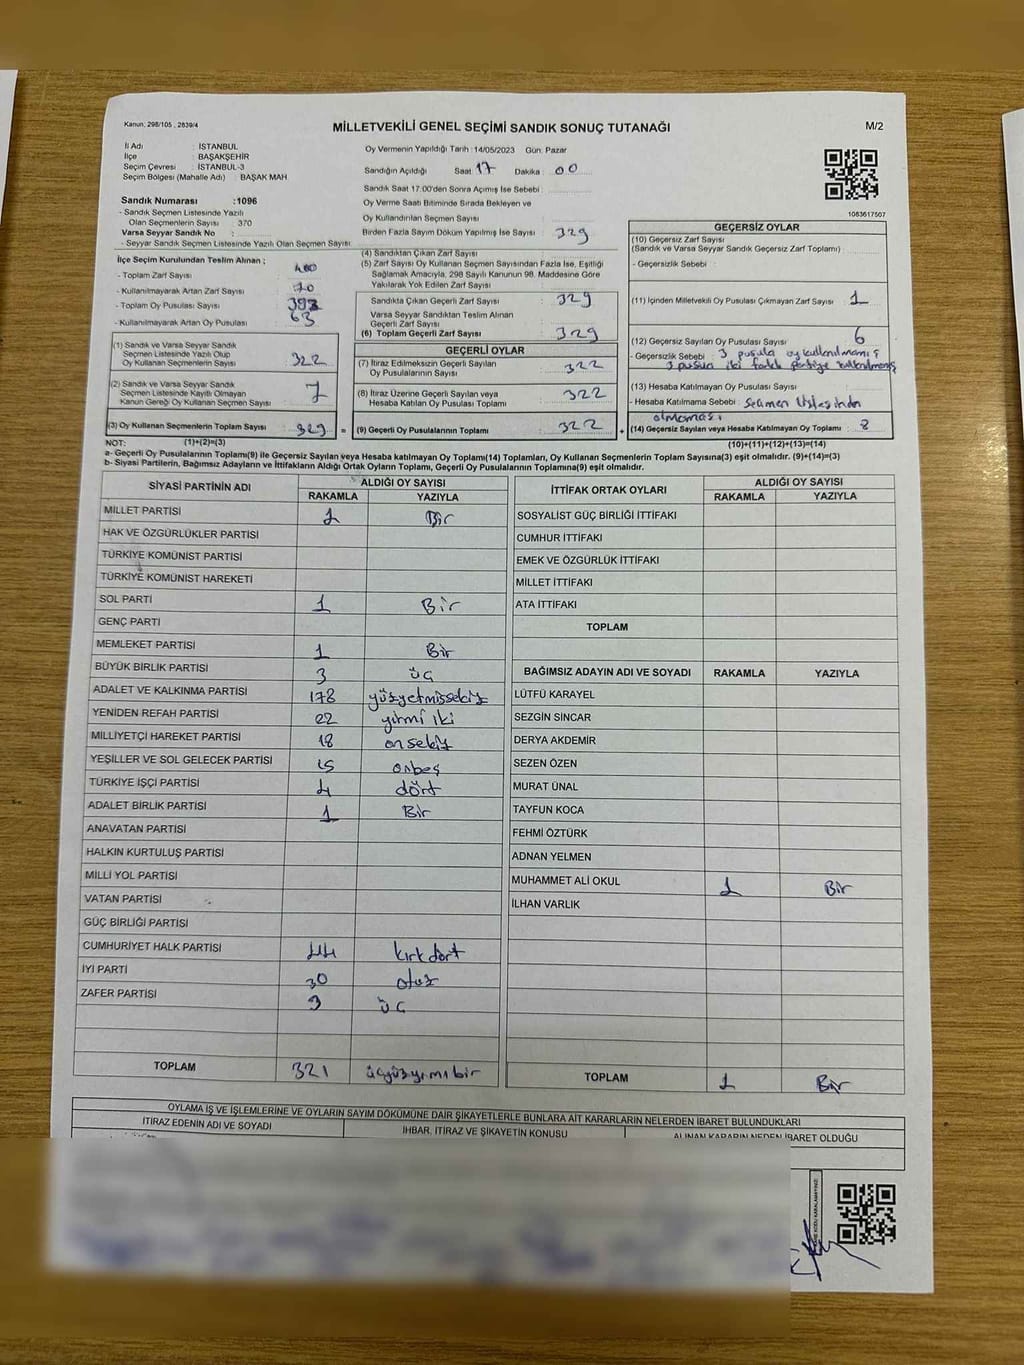 Kanun: 298/105 , 2839/4
MİLLETVEKİLİ GENEL SEÇİMİ SANDIK SONUÇ TUTANAĞI
M/2
İl Adı : İSTANBUL
İlçe : BAŞAKŞEHİR
Seçim Çevresi : İSTANBUL-3
Seçim Bölgesi (Mahalle Adı) : BAŞAK MAH
Sandık Numarası :1096
- Sandık Seçmen Listesinde Yazılı
Olan Seçmenlerin Sayısı : 370
Varsa Seyyar Sandık No :
- Seyyar Sandık Seçmen Listesinde Yazılı Olan Seçmen Sayısı
İlçe Seçim Kurulundan Teslim Alınan ;
- Toplam Zarf Sayısı : 400
- Kullanılmayarak Artan Zarf Sayısı : 70
- Toplam Oy Pusulası Sayısı :
- Kullanılmayarak Artan Oy Pusulası : 63
(1) Sandık ve Varsa Seyyar Sandık
Seçmen Listesinde Yazılı Olup
Oy Kullanan Seçmenlerin Sayısı : 322
(2) Sandık ve Varsa Seyyar Sandık
Seçmen Listesinde Kayıtlı Olmayan
Kanun Gereği Oy Kullanan Seçmen Sayısı : 7
(3) Oy Kullanan Seçmenlerin Toplam Sayısı : 329
Oy Vermenin Yapıldığı Tarih :14/05/2023 Gün: Pazar
Sandığın Açıldığı Saat : 17 Dakika : 00
Sandık Saat 17:00'den Sonra Açılmış İse Sebebi :
Oy Verme Saati Bitiminde Sırada Bekleyen ve
Oy Kullandırılan Seçmen Sayısı :
Birden Fazla Sayım Döküm Yapılmış İse Sayısı : 329
(4) Sandıktan Çıkan Zarf Sayısı :
(5) Zarf Sayısı Oy Kullanan Seçmen Sayısından Fazla İse, Eşitliği
Sağlamak Amacıyla, 298 Sayılı Kanunun 98. Maddesine Göre
Yakılarak Yok Edilen Zarf Sayısı :
Sandıkta Çıkan Geçerli Zarf Sayısı : 329
Varsa Seyyar Sandıktan Teslim Alınan
Geçerli Zarf Sayısı :
(6) Toplam Geçerli Zarf Sayısı : 329
GEÇERLİ OYLAR
(7) İtiraz Edilmeksizin Geçerli Sayılan
Oy Pusulalarının Sayısı : 322
(8) İtiraz Üzerine Geçerli Sayılan veya
Hesaba Katılan Oy Pusulası Toplamı : 322
= (9) Geçerli Oy Pusulalarının Toplamı : 322 +
1083617507
GEÇERSİZ OYLAR
(10) Geçersiz Zarf Sayısı
(Sandık ve Varsa Seyyar Sandık Geçersiz Zarf Toplamı) :
- Geçersizlik Sebebi :
(11) İçinden Milletvekili Oy Pusulası Çıkmayan Zarf Sayısı : 1
(12) Geçersiz Sayılan Oy Pusulası Sayısı : 6
- Geçersizlik Sebebi : 3 pusula oy kullanılmamış
3 pusula iki farklı partiye kullanılmış
(13) Hesaba Katılmayan Oy Pusulası Sayısı :
- Hesaba Katılmama Sebebi : Seçmen listesinden
olmaması
(14) Geçersiz Sayılan veya Hesaba Katılmayan Oy Toplamı : 8
NOT: (1)+(2)=(3) (10)+(11)+(12)+(13)=(14)
a- Geçerli Oy Pusulalarının Toplamı(9) ile Geçersiz Sayılan veya Hesaba katılmayan Oy Toplamı(14) Toplamları, Oy Kullanan Seçmenlerin Toplam Sayısına(3) eşit olmalıdır. (9)+(14)=(3)
b- Siyasi Partilerin, Bağımsız Adayların ve İttifakların Aldığı Ortak Oyların Toplamı, Geçerli Oy Pusulalarının Toplamına(9) eşit olmalıdır.
SİYASİ PARTİNİN ADI ALDIĞI OY SAYISI
RAKAMLA YAZIYLA
MİLLET PARTİSİ 1 Bir
HAK VE ÖZGÜRLÜKLER PARTİSİ
TÜRKİYE KOMÜNİST PARTİSİ
TÜRKİYE KOMÜNİST HAREKETİ
SOL PARTİ 1 Bir
GENÇ PARTİ
MEMLEKET PARTİSİ 1 Bir
BÜYÜK BİRLİK PARTİSİ 3 üç
ADALET VE KALKINMA PARTİSİ 178 yüzyetmişsekiz
YENİDEN REFAH PARTİSİ 22 yirmi iki
MİLLİYETÇİ HAREKET PARTİSİ 18 onsekiz
YEŞİLLER VE SOL GELECEK PARTİSİ 15 onbeş
TÜRKİYE İŞÇİ PARTİSİ 4 dört
ADALET BİRLİK PARTİSİ 1 Bir
ANAVATAN PARTİSİ
HALKIN KURTULUŞ PARTİSİ
MİLLİ YOL PARTİSİ
VATAN PARTİSİ
GÜÇ BİRLİĞİ PARTİSİ
CUMHURİYET HALK PARTİSİ 44 kırkdört
İYİ PARTİ 30 otuz
ZAFER PARTİSİ 3 üç
TOPLAM 321 üçyüzyirmibir
İTTİFAK ORTAK OYLARI ALDIĞI OY SAYISI
RAKAMLA YAZIYLA
SOSYALİST GÜÇ BİRLİĞİ İTTİFAKI
CUMHUR İTTİFAKI
EMEK VE ÖZGÜRLÜK İTTİFAKI
MİLLET İTTİFAKI
ATA İTTİFAKI
TOPLAM
BAĞIMSIZ ADAYIN ADI VE SOYADI RAKAMLA YAZIYLA
LÜTFÜ KARAYEL
SEZGİN SİNCAR
DERYA AKDEMİR
SEZEN ÖZEN
MURAT ÜNAL
TAYFUN KOCA
FEHMİ ÖZTÜRK
ADNAN YELMEN
MUHAMMET ALİ OKUL 1 Bir
İLHAN VARLIK
TOPLAM 1 Bir
OYLAMA İŞ VE İŞLEMLERİNE VE OYLARIN SAYIM DÖKÜMÜNE DAİR ŞİKAYETLERLE BUNLARA AİT KARARLARIN NELERDEN İBARET BULUNDUKLARI
İTİRAZ EDENİN ADI VE SOYADI İHBAR, İTİRAZ VE ŞİKAYETİN KONUSU ALINAN KARARIN NEDEN İBARET OLDUĞU